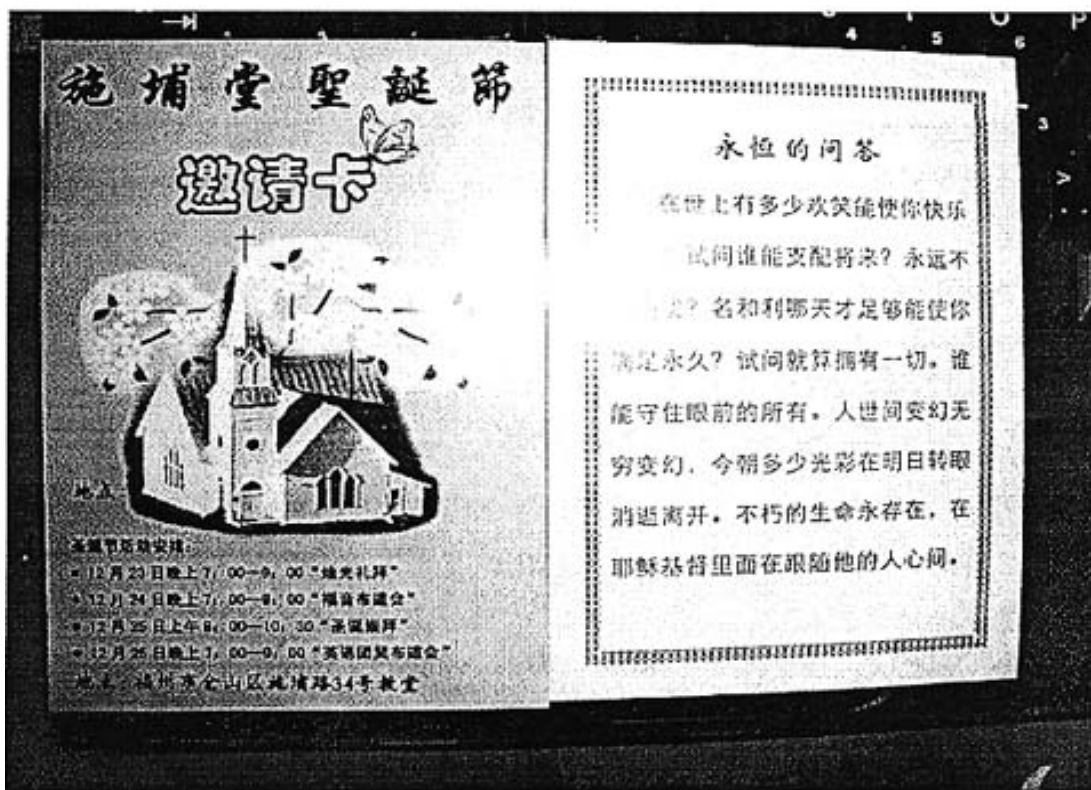 施埔堂聖誕節
邀请卡
地点
圣诞节活动安排:
* 12月23日晚上7:00—9:00“烛光礼拜”
* 12月24日晚上7:00—9:00“福音布道会”
* 12月25日上午8:00—10:30“圣诞崇拜”
* 12月25日晚上7:00—9:00“英语团契布道会”
福州市仓山区施埔路34号教堂
永恒的问答
在世上有多少欢笑能使你快乐
试问谁能支配将来?永远不
?名和利哪天才足够能使你
满足永久?试问就算拥有一切。谁
能守住眼前的所有。人世间变幻无
穷变幻.今朝多少光彩在明日转眼
消逝离开。不朽的生命永存在.在
耶稣基督里面在跟随他的人心间。
4
5
6
3